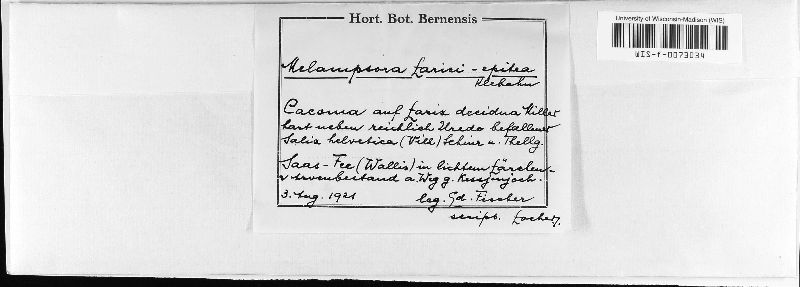 Hort. Bot. Bernensis
University of Wisconsin-Madison (WIS)
WIS-f-0073034
Melampsora Larici - epitea
Klebahn
Caeoma auf Larix decidua Miller
hart neben reichlich Uredo befallener
Salix helvetica (Vill) Schinz u. Thellg.
Saas-Fee (Wallis) in lichtem Lärchen-
u Arvenbestand a. Weg g. Kessjenjoch.
3. Aug. 1921 leg. Ed. Fischer
script.